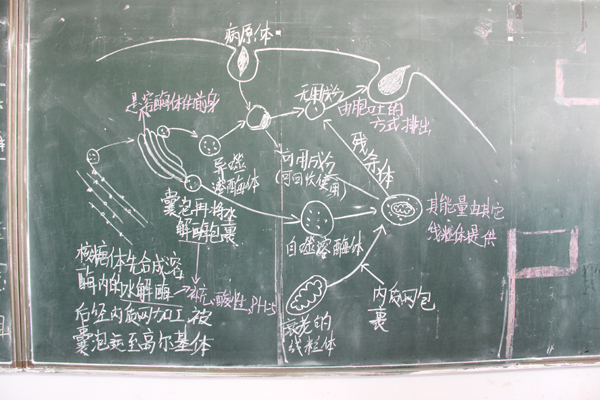 病原体
是溶酶体的前身
无用成分
由胞吐的
方式排出
异噬
溶酶体
有用成分
(可回收使用)
残余体
囊泡再将水
解酶包裹
自噬溶酶体
其能量由其它
线粒体提供
核糖体先合成溶
酶内的水解酶
后经内质网加工,被
囊泡运至高尔基体
酸性,PH=5
衰老的
线粒体
内质网包
裹